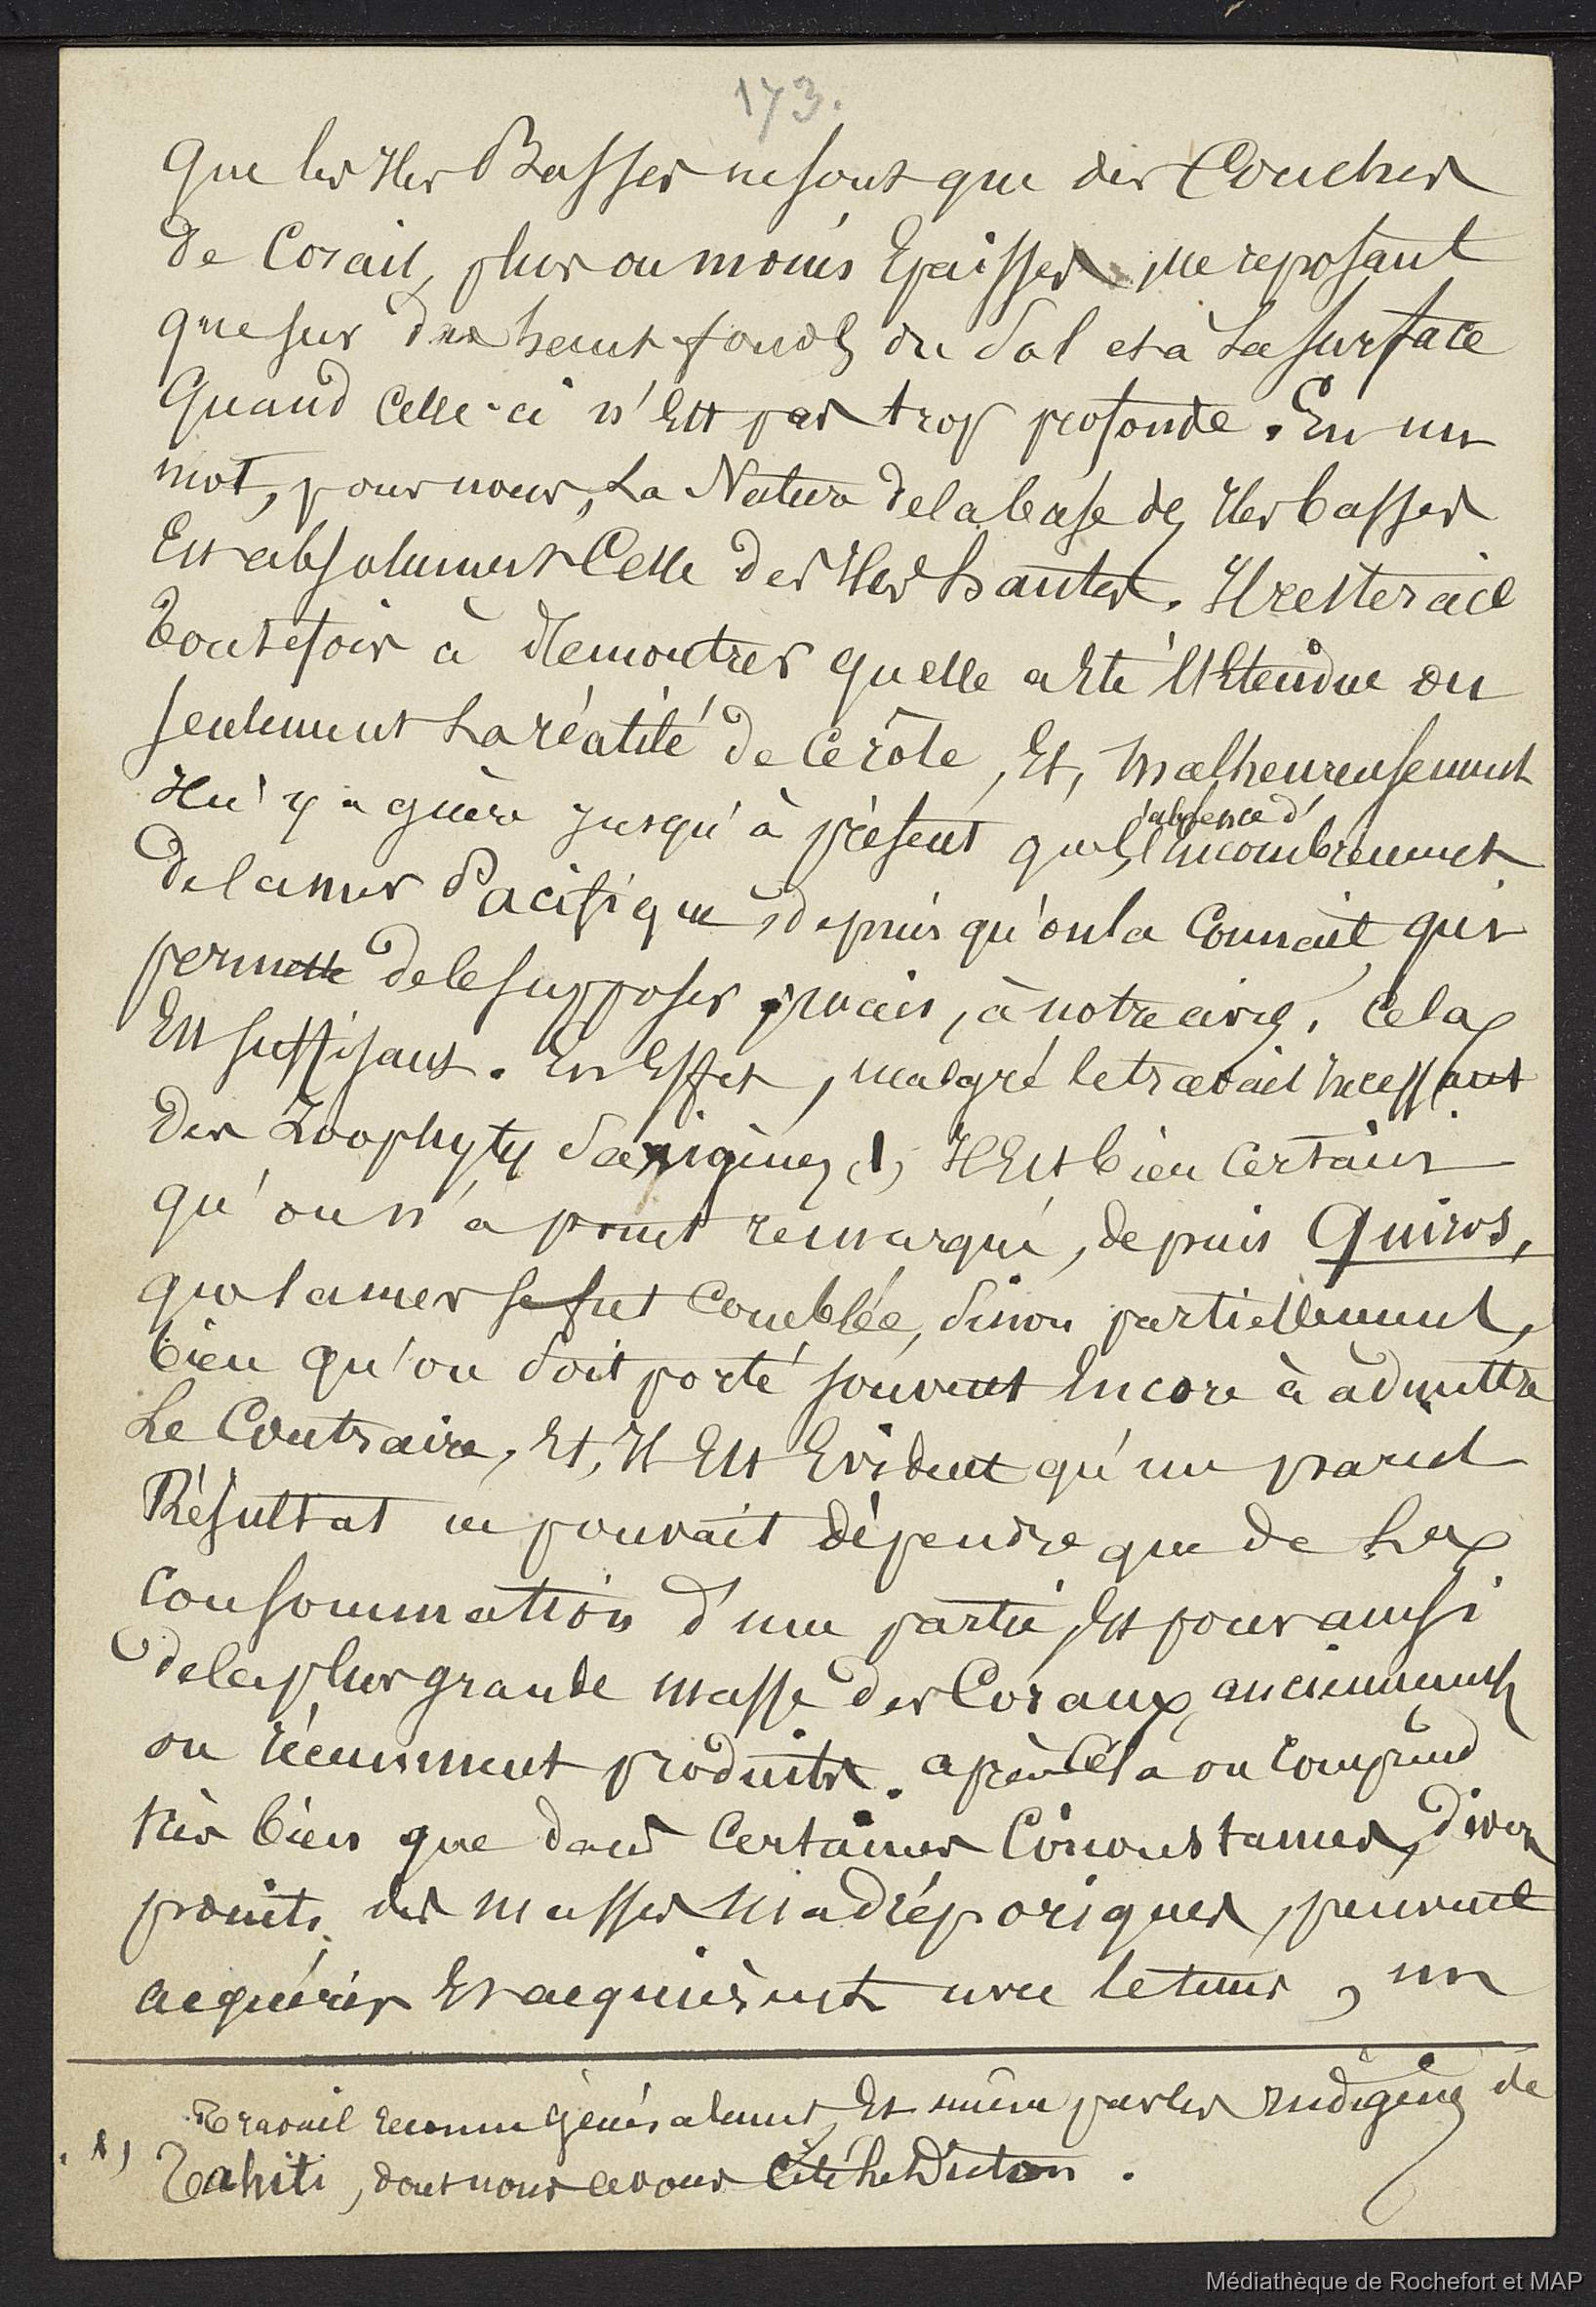 173.
que les Iles Basses ne sont que des Couches
de Corail, plus ou moins Epaisses, ne reposant
que sur des hauts fonds du Sol et à La surface
Quand celle-ci n'Est pas trop profonde. En un
mot, pour nous, La Nature de la base des Iles basses
Est absolument Celle des Iles hautes. Il resterait
Toutefois à démontrer quelle a Eté l'Etendue ou
seulement La réalité de ce rôle, Et, malheureusement
Il n'y a guère jusqu'à présent que l'absence d'Encombrement
de la mer Pacifique, depuis qu'on la Connait, qui
permette de le supposer, mais, à notre avis, Cela
Est suffisant. En Effet, malgré le travail incessant
des Zoophytes Saxigènes (1), Il Est bien Certain
qu'on n'a point remarqué, depuis Quiros,
que la mer se fut Comblée, sinon partiellement,
bien qu'on soit porté souvent Encore à admettre
Le Contraire, Et, Il Est Evident qu'un pareil
Résultat ne pouvait dépendre que de La
Consommation d'une partie, Et pour ainsi
de la plus grande masse des Coraux, anciennement
ou récemment produits. après Cela on Comprend
très bien que dans Certaines Circonstances, divers
points des masses madréporiques, peuvent
acquérir Et acquièrent avec le tems, un
(1) Travail reconnu généralement, Et même par les Indigènes de
Tahiti, dont nous avons Cité Le Dicton.
Médiathèque de Rochefort et MAP